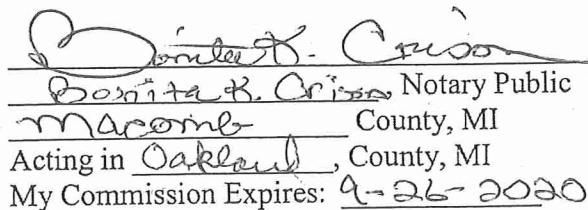 Bonita K. Crison
Bonita K. Crison, Notary Public
Macomb County, MI
Acting in Oakland, County, MI
My Commission Expires: 9-26-2020